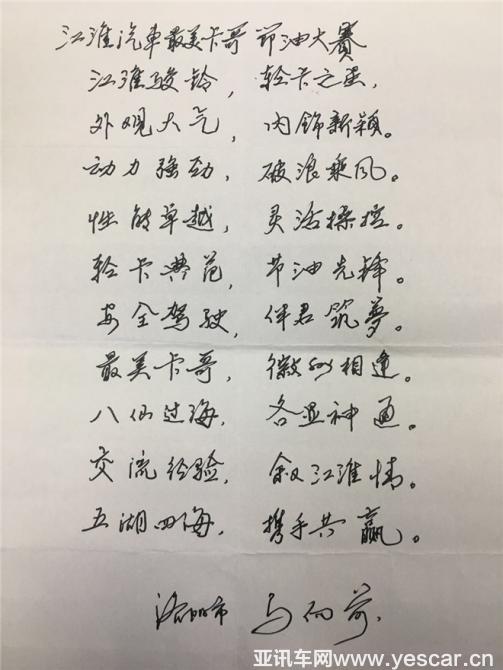 江淮汽車最美卡哥 节油大賽
江淮骏铃，轻卡之
外观大气，内饰新颖。
动力强劲，破浪乘风。
性能卓越，灵活操控。
轻卡典范，节油先锋。
安全驾驶，伴君筑夢。
最美卡哥，徽州相逢。
八仙过海，各显神通。
交流经验，叙江淮情。
五湖四海，携手共赢。
洛阳市 马向
亚讯车网www.yescar.cn